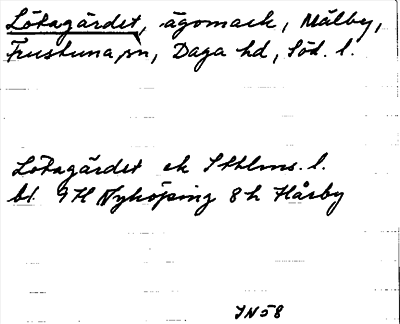 Lötagärdet, ägomark, Målby,
Frustuna sn, Daga hd, Söd. l.
Lötagärdet ek Sthlms. l.
bl. 9H Nyköping 8h Hårby
IN58